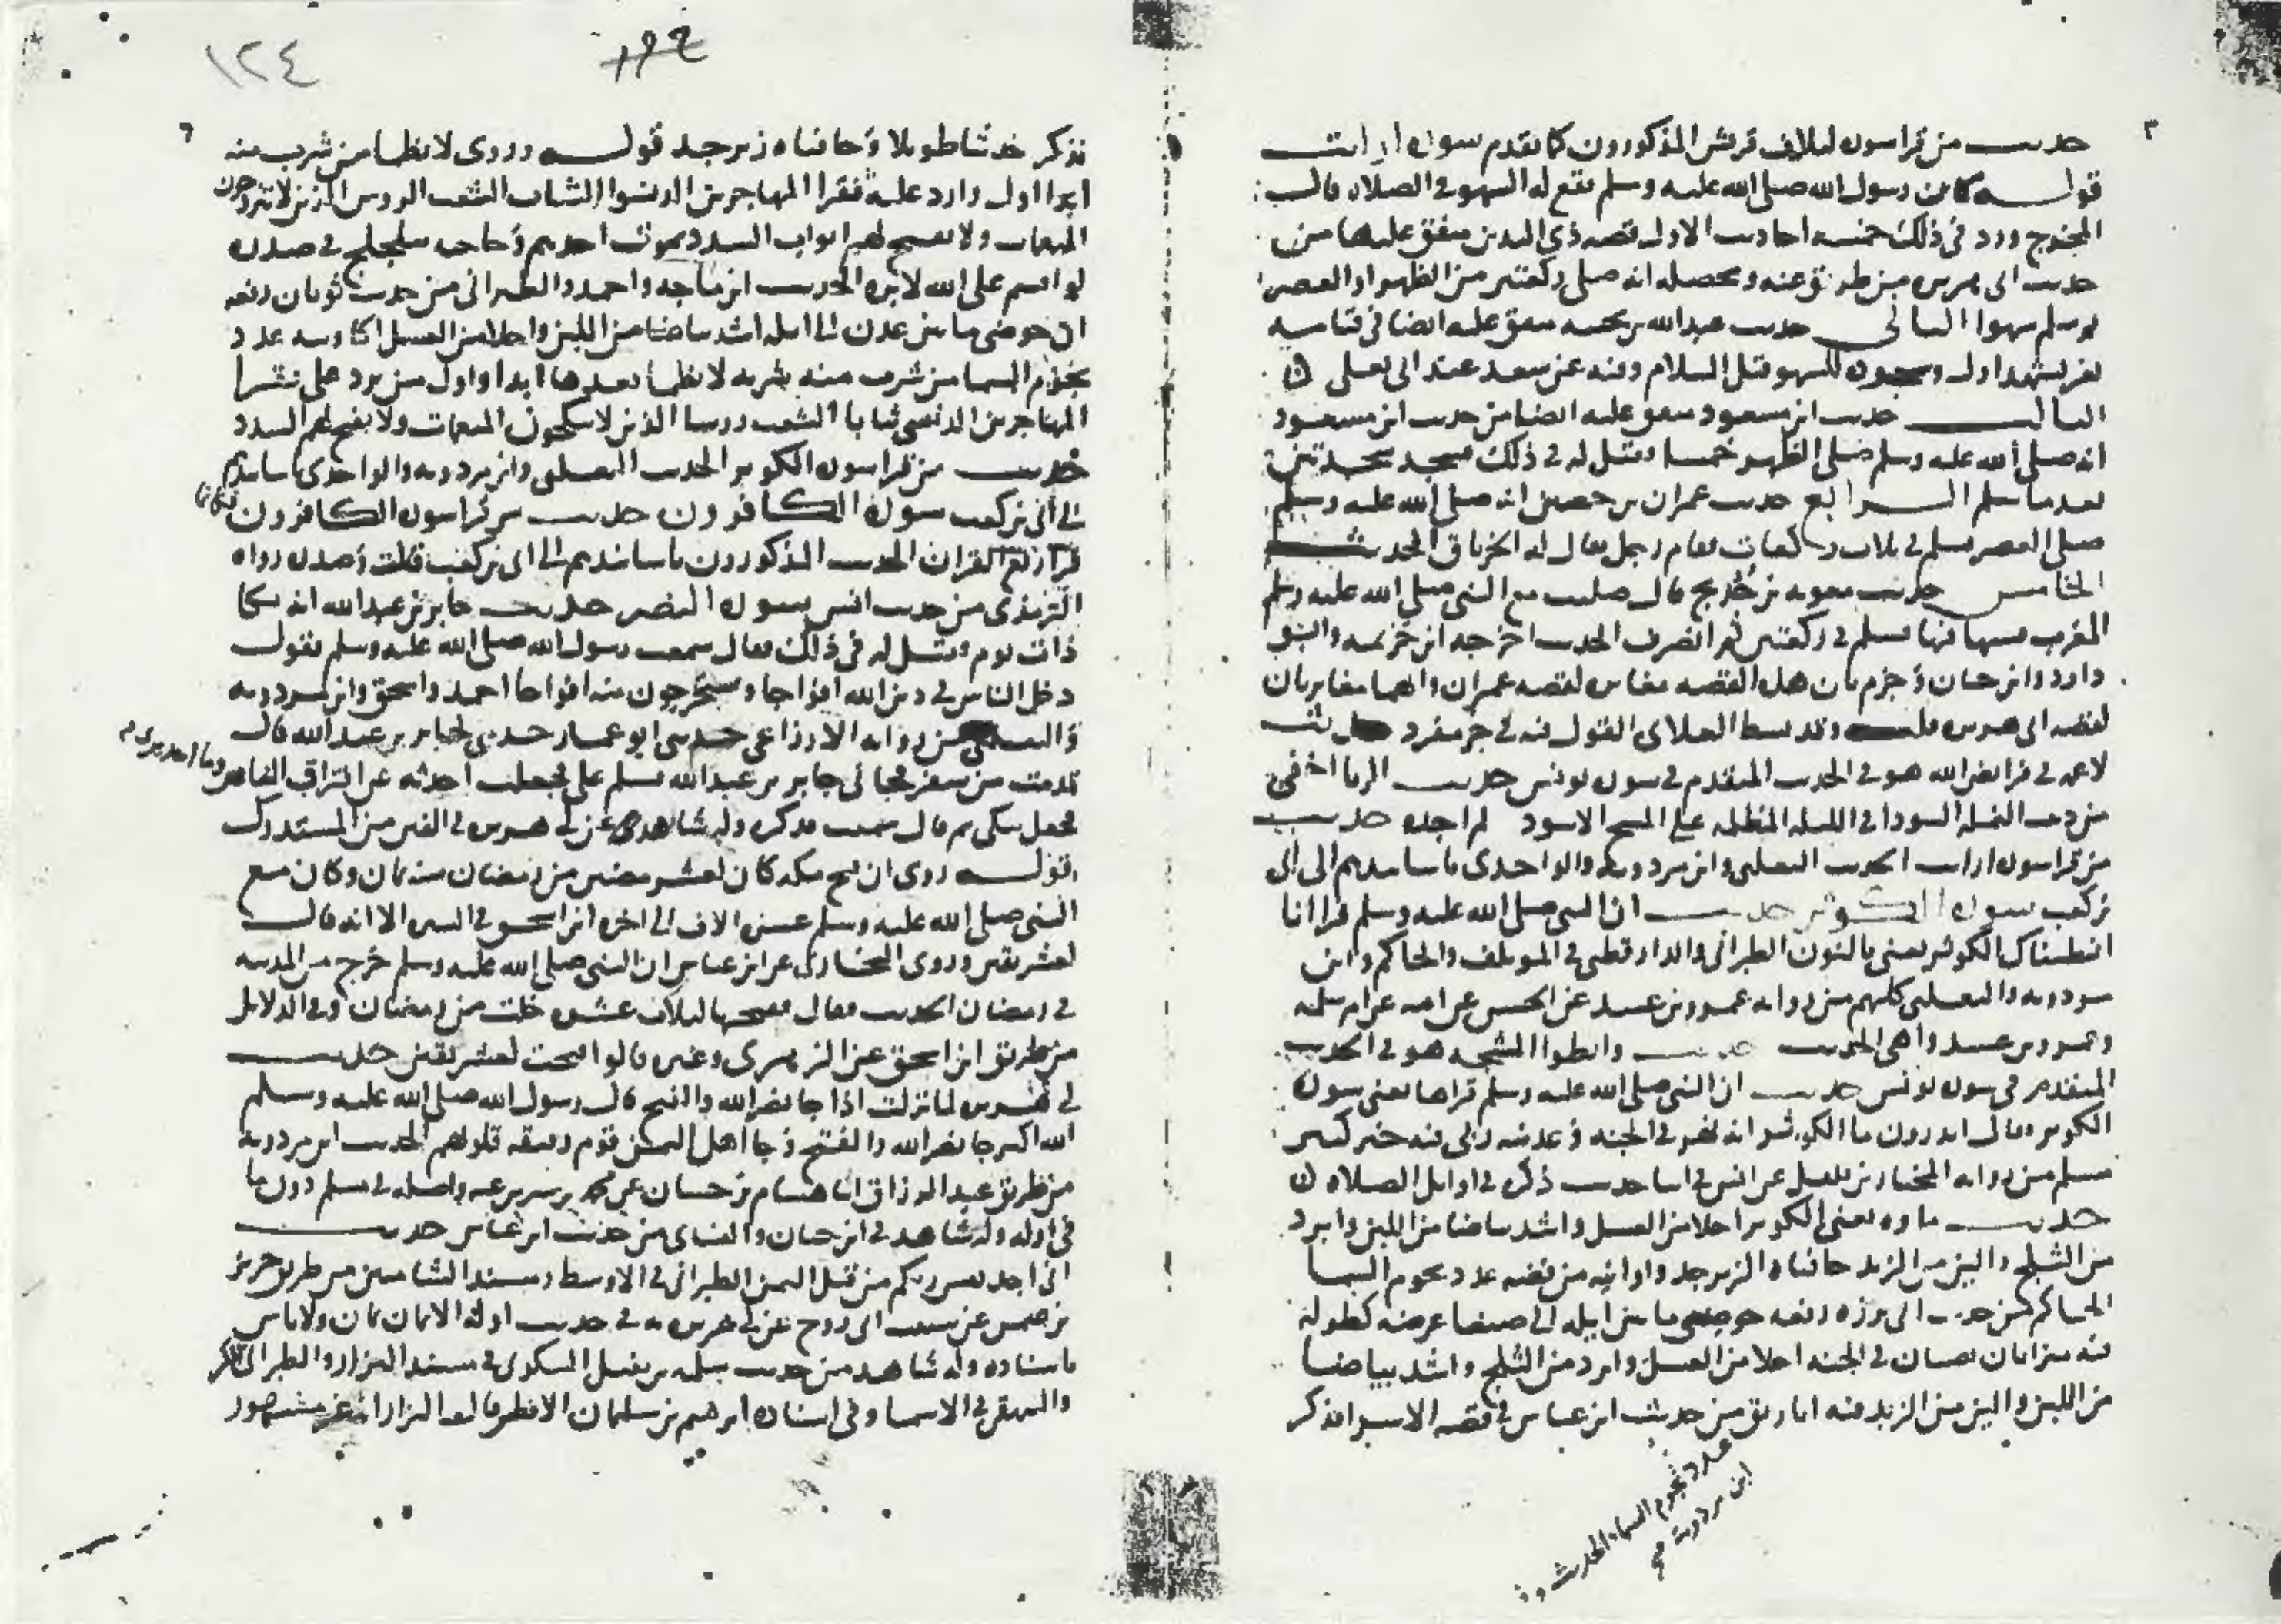 حديث من قرا سورة لايلاف قريش المذكورون كما تقدم سورة ارايت
قوله كان رسول الله صلى الله عليه وسلم يقع له السهو في الصلاه قالـ
المخرج ورد في ذلك خمسه احاديث الاول قصه ذي اليدين متفق عليها من
حديث ابي هريره من طريق عنه ومحصله انه صلى ركعتين من الظهر او العصر
ثم سلم سهوا الثاني حديث عبدالله بن بحينه متفق عليه ايضا في قيامه
بغير تشهد اول وسجوده للسهو قبل السلام وفيه عن سعد عند ابي يعلى
الثالث حديث ابن مسعود متفق عليه ايضا من حديث ابن مسعود
انه صلى الله عليه وسلم صلى الظهر خمسا فقيل له في ذلك فسجد سجدتين
بعد ما سلم الرابع حديث عمران بن حصين انه صلى الله عليه وسلم
صلى العصر فسلم في ثلاث ركعات فقام رجل يقال له الخرباق الحديث
الخامس حديث معويه بن خديج قال صليت مع النبي صلى الله عليه وسلم
المغرب فسها فيها فسلم في ركعتين ثم انصرف الحديث اخرجه ابن خزيمه وابو
داود وابن حبان وجزم بان هذه القصه مغايره لقصه عمران وانهما مغايرتان
لقصه ابي هريره قلت وقد بسط العلاي القول فيه في جزء مفرد حديث
لا غمه في فرايض الله هو في الحديث المتقدم في سورة يونس حديث الريا اخفى
من دبيب النمله السودا في الليله المظلمه على المسح الاسود لم اجده حديث
من قرا سورة ارايت الحديث الثعلبي وابن مردويه والواحدي باسانيدهم الى ابي
بن كعب سورة الكوثر حديث ان النبي صلى الله عليه وسلم قرا انا
انطيناك الكوثر يعني بالنون الطبراني والدارقطني في الموتلف والحاكم وابن
مردويه والثعلبي كلهم من روايه عمرو بن عبيد عن الحسن عن امه عن ام سلمه
وعمرو بن عبيد واهي الحديث حديث وانطوا الثبجه هو في الحديث
المتقدم في سورة يونس حديث ان النبي صلى الله عليه وسلم قراها يعني سورة
الكوثر وقال اتدرون ما الكوثر انه نهر في الجنه وعدنيه ربي فيه خير كثير
مسلم من روايه المختار بن فلفل عن انس في اثنا حديث ذكره في اوايل الصلاه
حديث ماوه يعني الكوثر احلا من العسل واشد بياضا من اللبن وابرد
من الثلج والين من الزبد حافتاه الزبرجد واوانيه من فضه عدد نجوم السما
الحاكم من حديث ابي برزه رفعه حوضي ما بين ايله الى صنعا عرضه كطوله
فيه ميزابان يصبان في الجنه احلا من العسل وابرد من الثلج واشد بياضا
من اللبن والين من الزبد فيه اباريق من حديث ابن عباس في قصه الاسرا فذكر
عدد نجوم السماء الحديث و
ابن مردوية
١٢٤
فذكر حديثا طويلا وحافتاه زبرجد قوله وروى لا يظما من شرب منه
ابدا اول وارد عليه فقرا المهاجرين الدنسوا الثياب الشعث الروس الذين لا يتزوجون
المنعمات ولا تفتح لهم ابواب السدد يموت احدهم وحاجته تتلجلج في صدره
لو اقسم على الله لابره الحديث ابن ماجه واحمد والطبراني من حديث ثوبان رفعه
ان حوضي ما بين عدن الى ايله اشد بياضا من اللبن واحلا من العسل اكاويبه عدد
نجوم السما من شرب منه شربه لا يظما بعدها ابدا واول من يرد على فقرا
المهاجرين الدنس ثيابا الشعث روسا الذين لا ينكحون المنعمات ولا يفتح لهم السدد
حديث من قرا سورة الكوثر الحديث الثعلبي وابن مردويه والواحدي باسانيدهم
الى ابي بن كعب سورة الكافرون حديث من قرا سورة الكافرون فكانما
قرا ربع القران الحديث المذكورون باسانيدهم الى ابي بن كعب قلت وصدره رواه
الترمذي من حديث انس سورة النصر حديث جابر بن عبدالله انه بكا
ذات يوم فقيل له في ذلك فقال سمعت رسول الله صلى الله عليه وسلم يقول
دخل الناس في دين الله افواجا وسيخرجون منه افواجا احمد واسحق وابن مردويه
والثعلبي من روايه الاوزاعي حدثني ابو عمار حدثني جار لجابر بن عبدالله قال
قدمت من سفر فجاني جابر بن عبدالله فسلم علي فجعلت احدثه عن افتراق الناس وما احدثوا
فجعل يبكي ثم قال سمعت فذكره وله شاهد عن ابي هريره في الفتن من المستدرك
قوله روى ان فتح مكه كان لعشر مضين من رمضان سنه ثمان وكان مع
النبي صلى الله عليه وسلم عشره الاف الى اخره ابن اسحق في السيره الا انه قالـ
لعشر بقين وروى البخاري عن ابن عباس ان النبي صلى الله عليه وسلم خرج من المدينه
في رمضان الحديث فقال فصبحها لثلاث عشره خلت من رمضان وفي الدلايل
من طريق ابن اسحق عن الزهري وغيره قالوا الفتح لعشر بقين حديث
ابي هريره لما نزلت اذا جا نصر الله والفتح قال رسول الله صلى الله عليه وسلم
الله اكبر جا نصر الله والفتح وجا اهل اليمن قوم رقيقه قلوبهم الحديث ابن مردويه
من طريق عبد الرزاق انا هشام بن حسان عن محمد بن سيرين عنه واصله في مسلم دون ما
في اوله وله شاهد في ابن حبان والنساي من حديث ابن عباس حديث
اني اجد نفس ربكم من قبل اليمن الطبراني في الاوسط ومسند الشاميين من طريق حريز
بن عثمن عن شبيب ابي روح عن ابي هريره به في حديث اوله الايمان يمان ولا باس
باسناده وله شاهد من حديث سلمه بن نفيل السكوني في مسند البزار والطبراني الكبير
والبيهقي في الاسما وفي اسناده ابرهيم بن سليمان الافطس قال البزار انه غير مشهور